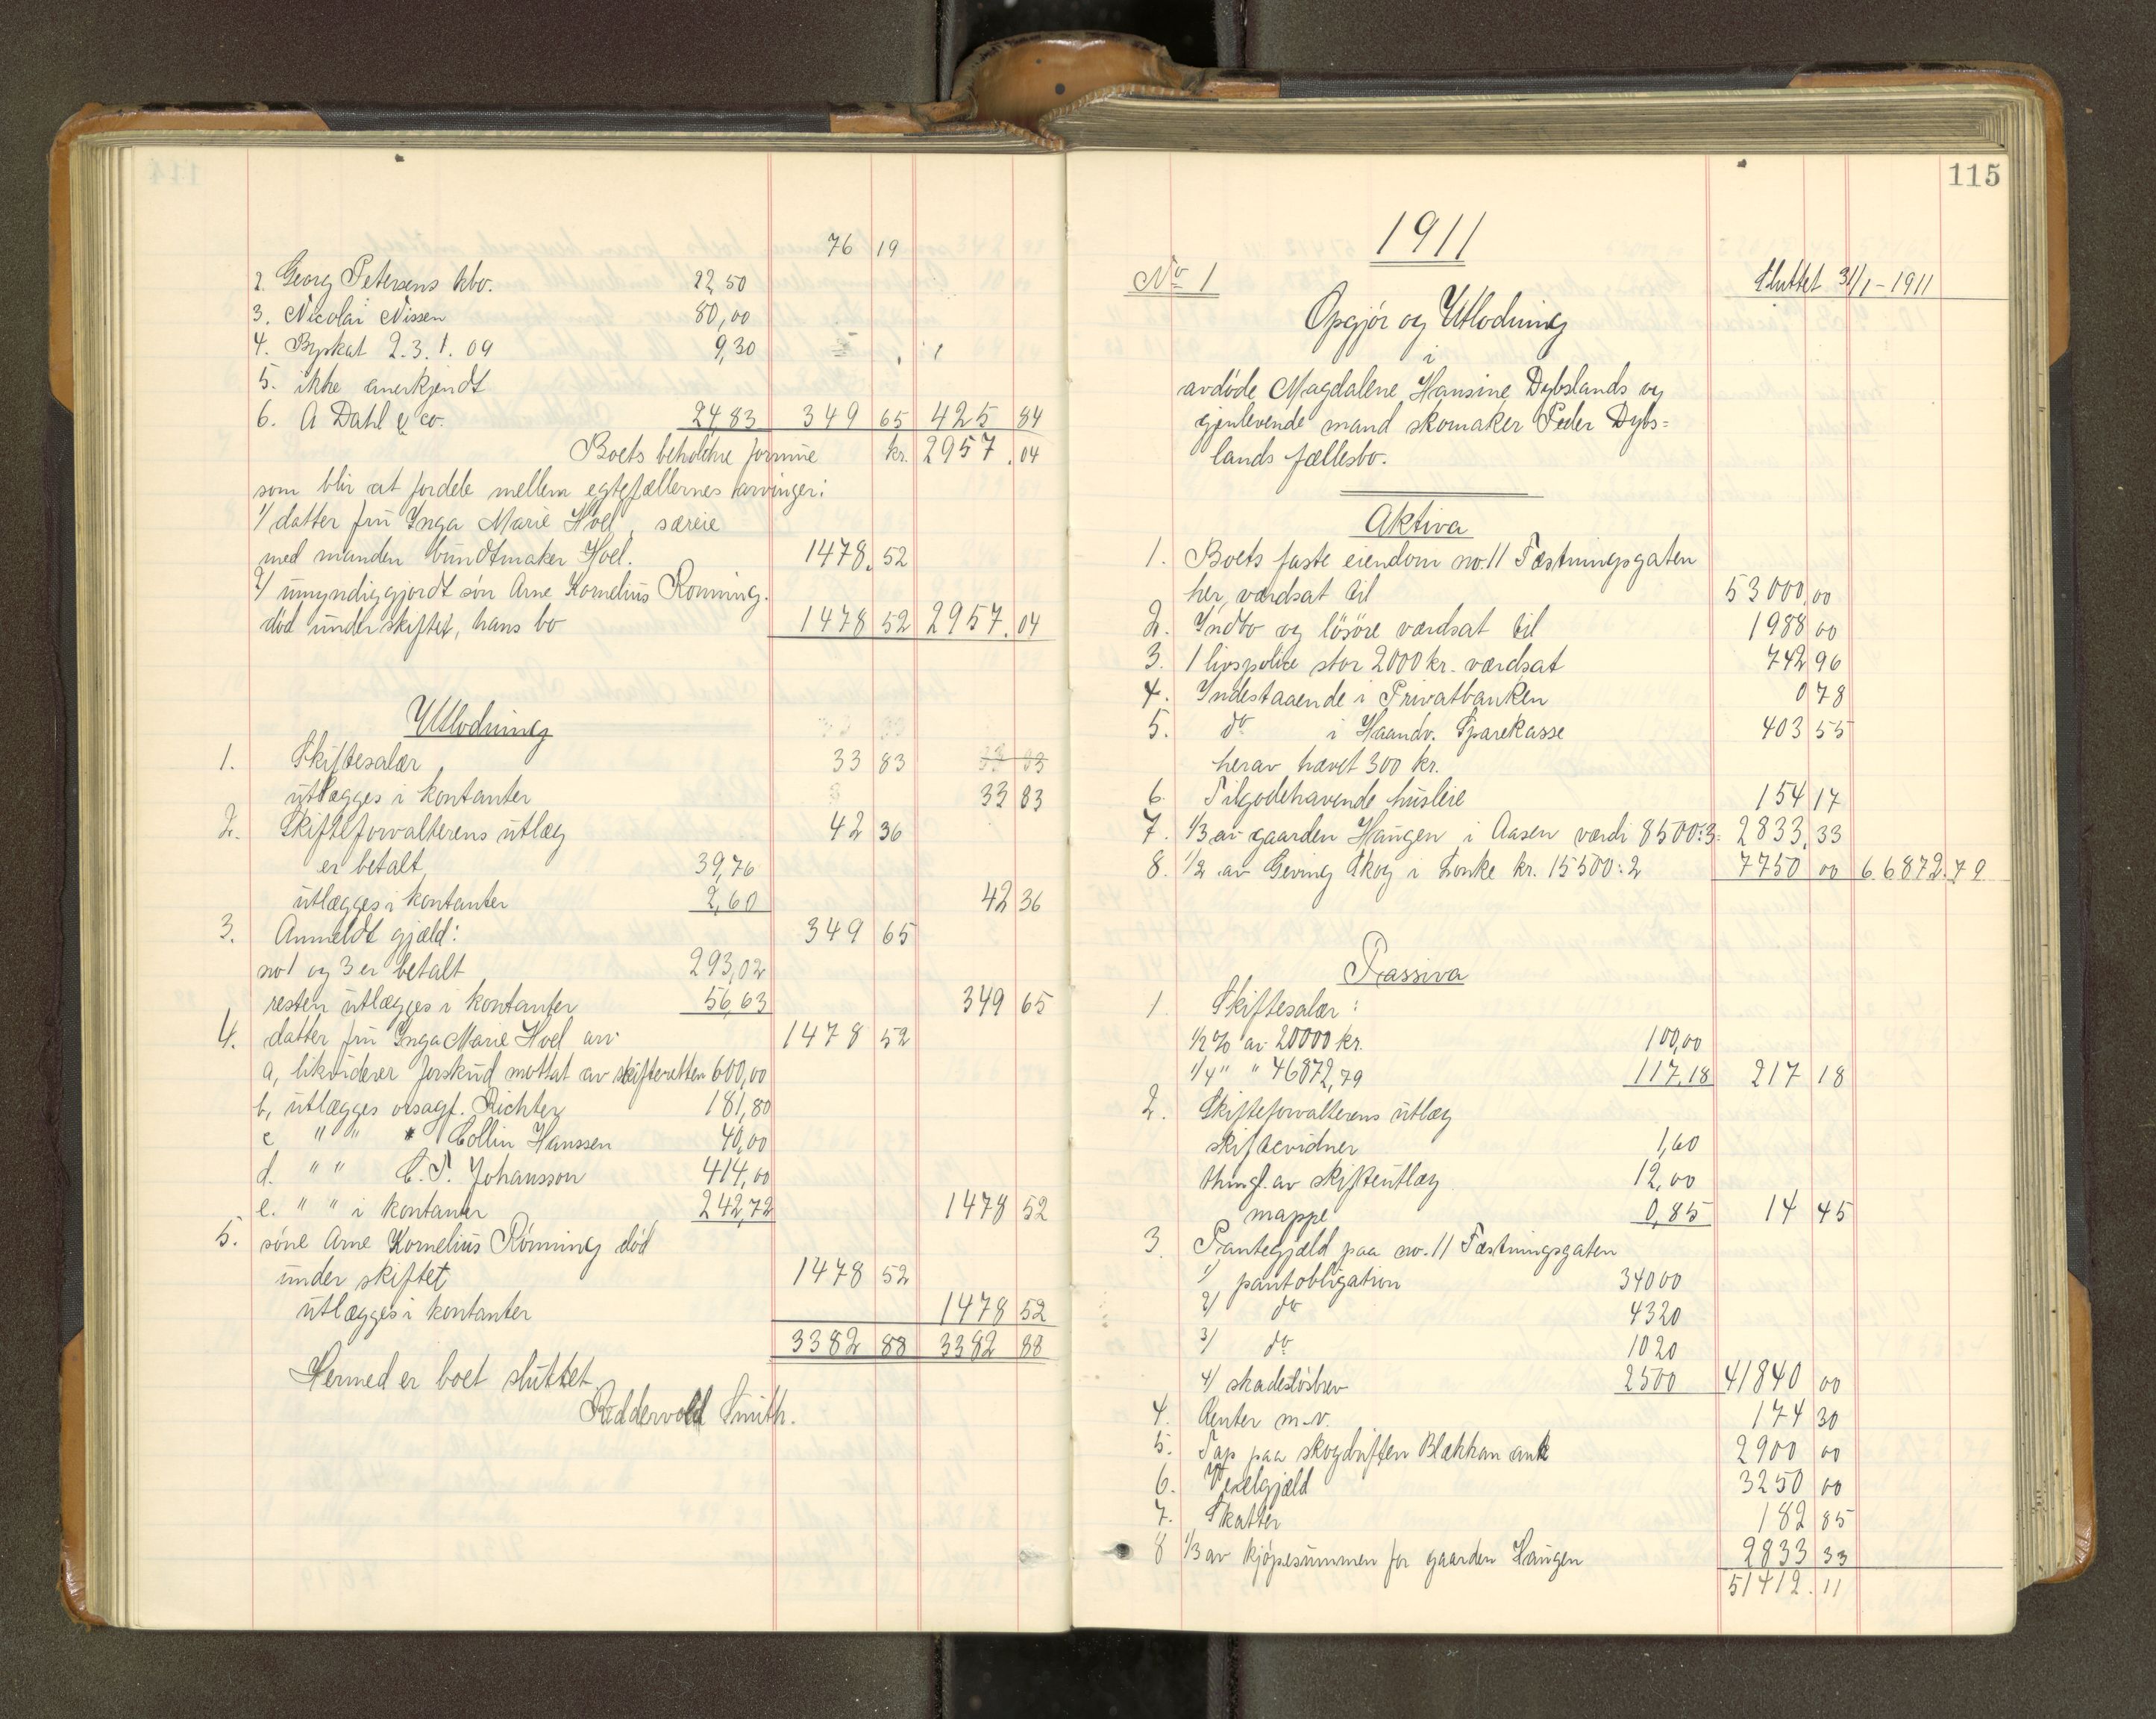 114
76 19
2. Georg Petersens kbo. 22,50
3. Nicolai Nissen 80,00
4. Byskat 2.3.1.09 9,30
5. ikke anerkjendt
6. A Dahl & co. 24,83 349 65 425 84
Boets beholdne formue kr. 2957.04
som blir at fordele mellem egtefællernes arvinger:
1/ datter fru Inga Marie Hoel, særeie
med manden bundtmaker Hoel. 1478.52
2/ umyndiggjordt søn Arne Kornelius Rønning.
død under skiftet, hans bo 1478 52 2957.04
Utlodning
1. Skiftesalær 33 83 33 83
utlægges i kontanter 33 83
2. Skifteforvalterens utlæg 42 36
er betalt 39,76
utlægges i kontanter 2,60 42 36
3. Anmeldt gjæld: 349 65
no 1 og 3 er betalt 293,02
resten utlægges i kontanter 56,63 349 65
4. datter fru Inga Marie Hoel arv 1478 52
a, likviderer forskud mottat av skifteretten 600,00
b, utlægges orsagf. Richter 181,80
c " " " Collin Hanssen 40,00
d. " " C. T. Johansson 414,00
e. " " i kontanter 242,72 1478 52
5. søne Arne Kornelius Rønning død
under skiftet 1478 52
utlægges i kontanter 1478 52
3382 88 3382 88
Hermed er boet sluttet
Reddervold Smith.
115
1911
No 1 Sluttet 31/1-1911
Opgjør og Utlodning
i
avdøde Magdalene Hansine Dybslands og
gjenlevende mand skomaker Peder Dybs=
lands fællesbo.
Aktiva
1. Boets faste eiendom no. 11 Fæstningsgaten
her, værdsat til 53000,00
2. Indbo og løsøre værdsat til 1988 00
3. 1 livspolice stor 2000 kr. værdsat 742 96
4. Indestaaende i Privatbanken 0 78
5. do i Haandv. Sparekasse 403 55
herav hævet 300 kr.
6. Tilgodehavende husleie 154 17
7. 1/3 av gaarden Haugen i Aasen værdi 8500:3= 2833,33
8. 1/2 av Geving Skog i Lonke kr. 15500:2 7750 00 66872.79
Passiva
1 Skiftesalær:
1/2 % av 20000 kr. 100,00
1/4 " " 46872,79 117,18 217 18
2. Skifteforvalterens utlæg
skiftevidner 1,60
thingl. av skifteutlæg 12,00
mappe 0,85 14 45
3 Pantegjæld paa no. 11 Fæstningsgaten
1/ pantobligation 34000
2/ do 4320
3/ do 1020
4/ skadesløsbrev 2500 41840 00
4. Renter m.v. 174 30
5. Tap paa skogdriften Blækkan ank 2900 00
6. Vexelgjæld 3250 00
7. Skatter 182 85
8 1/3 av kjøpesummen for gaarden Haugen 2833 33
51412.11